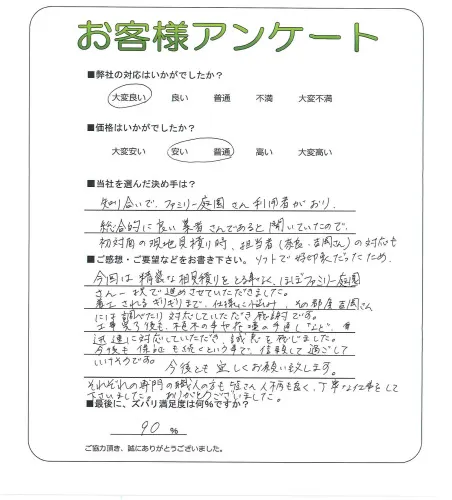 お客様アンケート
■弊社の対応はいかがでしたか？
大変良い 良い 普通 不満 大変不満
■価格はいかがでしたか？
大変安い 安い 普通 高い 大変高い
■当社を選んだ決め手は？
知り合いで、ファミリー庭園さん利用者がおり、
総合的に良い業者さんであると聞いていたので、
初対面の現地見積り時、担当者(奈良・吉岡さん)の対応も
■ご感想・ご要望などをお書き下さい。 ソフトで好印象だったため。
今回は相見積りをとる事なく、ほぼファミリー庭園
さん一択で進めさせていただきました。
着工されるギリギリまで、仕様に、その都度吉岡さん
には調べたり対応していただき感謝です。
工事完了後も、植木の手直しなど、
迅速に対応していただき、誠意を感じました。
今後も保証も続くという事で、信頼して過ごして
いけそうです。 今後とも宜しくお願い致します。
それぞれの専門の職人の方も皆さん人柄も良く、丁寧な仕事をして
下さいました。ありがとうございました。
■最後に、ズバリ満足度は何%ですか？
90 %
ご協力頂き、誠にありがとうございました。